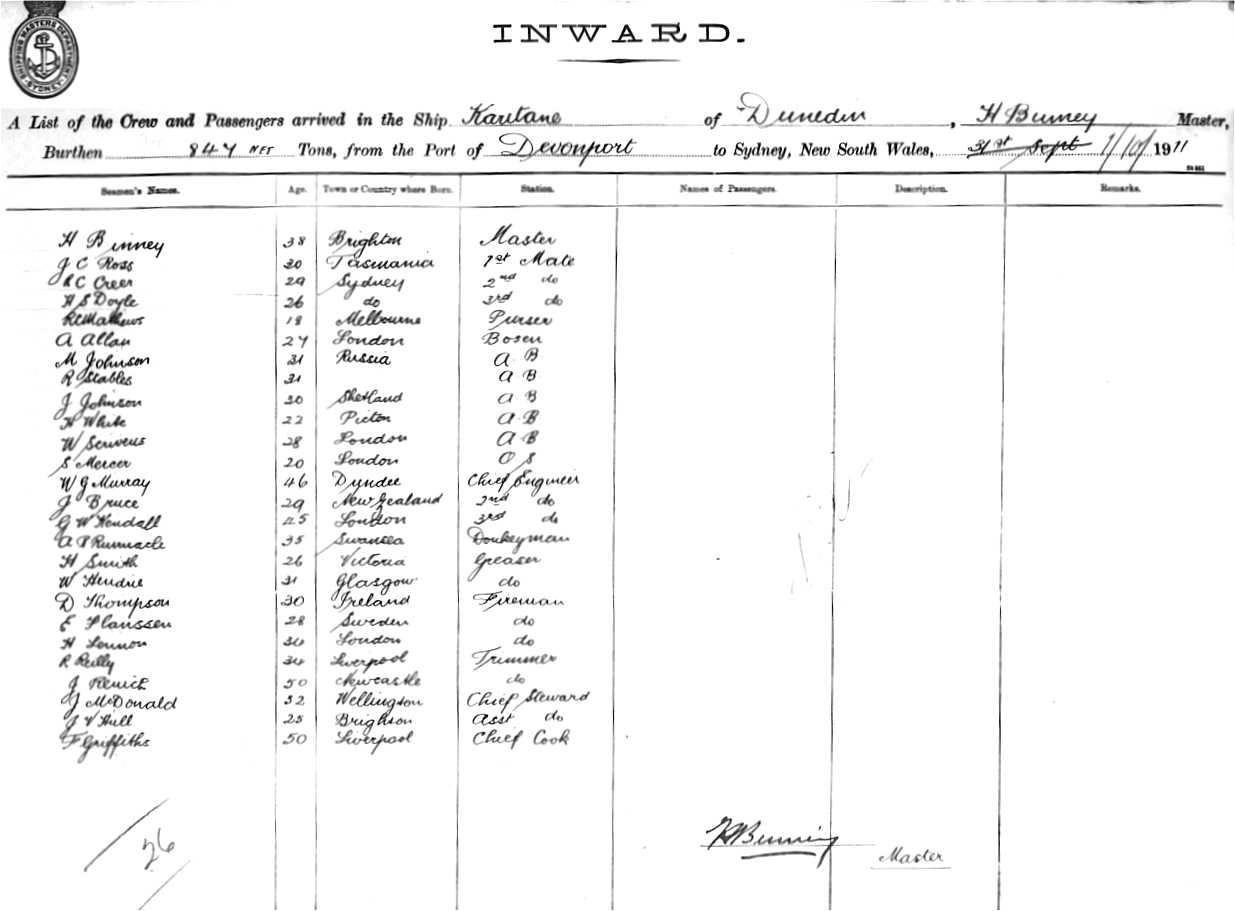 SHIPPING MASTERS DEPARTMENT
SYDNEY
INWARD.
A List of the Crew and Passengers arrived in the Ship Karitane of Dunedin, H Binney Master,
Burthen 847 NET Tons, from the Port of Devonport to Sydney, New South Wales, 31st Sept 1/10/1911
Seamen's Names. Age. Town or Country where Born. Station. Names of Passengers. Description. Remarks.
H Binney 38 Brighton Master
J C Ross 30 Tasmania 1st Mate
R C Creer 29 Sydney 2nd do
H S Doyle 26 do 3rd do
R C Mathews 18 Melbourne Purser
A Allan 27 London Bosen
M Johnson 31 Russia A B
R Stables 31 A B
J Johnson 30 Shetland A B
H White 22 Picton A B
W Scrivens 28 London A B
S Mercer 20 London O S
W G Murray 46 Dundee Chief Engineer
J Bruce 29 New Zealand 2nd do
G W Kendall 45 London 3rd do
A P Rumnacle 35 Swansea Donkeyman
H Smith 26 Victoria Greaser
W Hendrie 31 Glasgow do
D Thompson 30 Ireland Fireman
E Planssen 28 Sweden do
H Lennon 34 London do
R Reilly 34 Liverpool Trimmer
J Renick 50 Newcastle do
J McDonald 32 Wellington Chief Steward
J V Hull 25 Brighson Asst do
F Griffiths 50 Liverpool Chief Cook
26
H Binney
Master